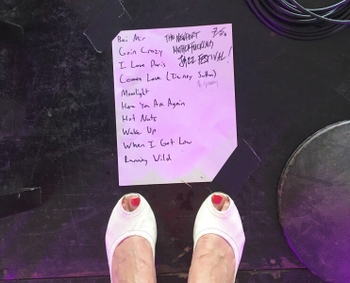 Bei Mir
Goin Crazy
I Love Paris
Comes Love (
Moonlight
Here You Are Again
Hot Nuts
Wake Up
When I Get Low
Running Wild
THE NEWPORT
MOTHERFUCKING
JAZZ FESTIVAL!